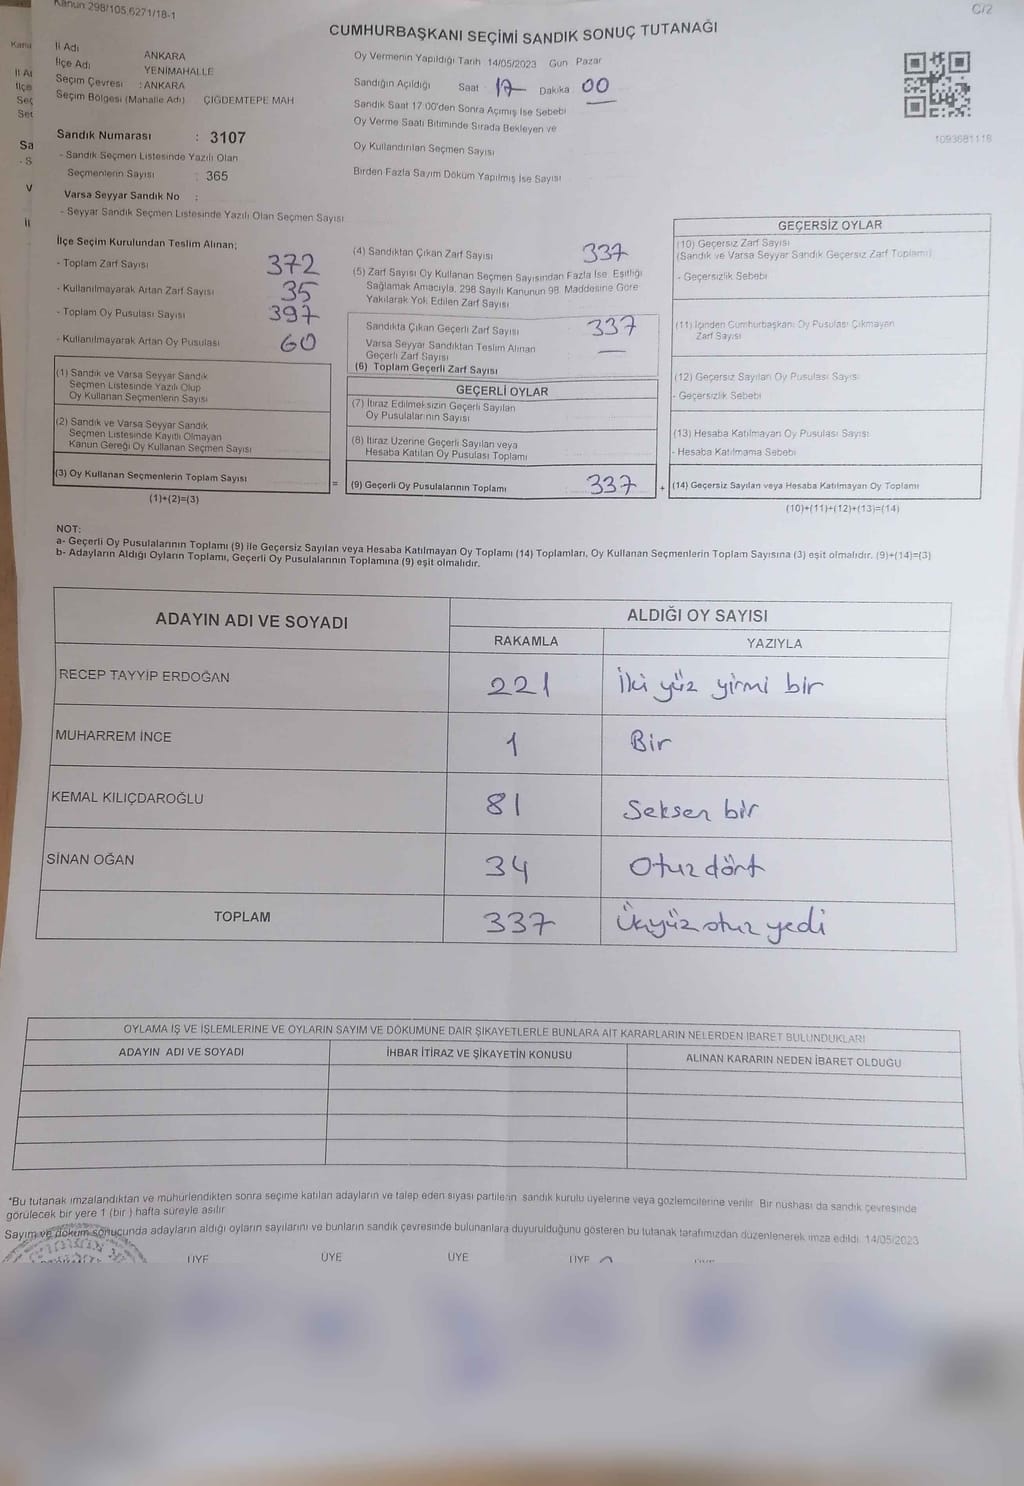 Kanun 298/105,6271/18-1
C/2
CUMHURBAŞKANI SEÇİMİ SANDIK SONUÇ TUTANAĞI
İl Adı ANKARA
İlçe Adı YENİMAHALLE
Seçim Çevresi : ANKARA
Seçim Bölgesi (Mahalle Adı) ÇİĞDEMTEPE MAH
Sandık Numarası : 3107
- Sandık Seçmen Listesinde Yazılı Olan
Seçmenlerin Sayısı : 365
Varsa Seyyar Sandık No :
- Seyyar Sandık Seçmen Listesinde Yazılı Olan Seçmen Sayısı
Oy Vermenin Yapıldığı Tarih 14/05/2023 Gün Pazar
Sandığın Açıldığı Saat 17 Dakika 00
Sandık Saat 17:00'den Sonra Açımış İse Sebebi
Oy Verme Saati Bitiminde Sırada Bekleyen ve
Oy Kullandırılan Seçmen Sayısı
Birden Fazla Sayım Döküm Yapılmış İse Sayısı
1093681118
İlçe Seçim Kurulundan Teslim Alınan;
- Toplam Zarf Sayısı 372
- Kullanılmayarak Artan Zarf Sayısı 35
- Toplam Oy Pusulası Sayısı 397
- Kullanılmayarak Artan Oy Pusulası 60
(1) Sandık ve Varsa Seyyar Sandık
Seçmen Listesinde Yazılı Olup
Oy Kullanan Seçmenlerin Sayısı
(2) Sandık ve Varsa Seyyar Sandık
Seçmen Listesinde Kayıtlı Olmayan
Kanun Gereği Oy Kullanan Seçmen Sayısı
(3) Oy Kullanan Seçmenlerin Toplam Sayısı
(1)+(2)=(3)
=
(4) Sandıktan Çıkan Zarf Sayısı 337
(5) Zarf Sayısı Oy Kullanan Seçmen Sayısından Fazla İse, Eşitliği
Sağlamak Amacıyla, 298 Sayılı Kanunun 98. Maddesine Göre
Yakılarak Yok Edilen Zarf Sayısı
Sandıkta Çıkan Geçerli Zarf Sayısı 337
Varsa Seyyar Sandıktan Teslim Alınan
Geçerli Zarf Sayısı —
(6) Toplam Geçerli Zarf Sayısı
GEÇERLİ OYLAR
(7) İtiraz Edilmeksizin Geçerli Sayılan
Oy Pusulalarının Sayısı
(8) İtiraz Üzerine Geçerli Sayılan veya
Hesaba Katılan Oy Pusulası Toplamı
(9) Geçerli Oy Pusulalarının Toplamı 337
+
GEÇERSİZ OYLAR
(10) Geçersiz Zarf Sayısı
(Sandık ve Varsa Seyyar Sandık Geçersiz Zarf Toplamı)
- Geçersizlik Sebebi
(11) İçinden Cumhurbaşkanı Oy Pusulası Çıkmayan
Zarf Sayısı
(12) Geçersiz Sayılan Oy Pusulası Sayısı
- Geçersizlik Sebebi
(13) Hesaba Katılmayan Oy Pusulası Sayısı
- Hesaba Katılmama Sebebi
(14) Geçersiz Sayılan veya Hesaba Katılmayan Oy Toplamı
(10)+(11)+(12)+(13)=(14)
NOT:
a- Geçerli Oy Pusulalarının Toplamı (9) ile Geçersiz Sayılan veya Hesaba Katılmayan Oy Toplamı (14) Toplamları, Oy Kullanan Seçmenlerin Toplam Sayısına (3) eşit olmalıdır. (9)+(14)=(3)
b- Adayların Aldığı Oyların Toplamı, Geçerli Oy Pusulalarının Toplamına (9) eşit olmalıdır.
ADAYIN ADI VE SOYADI ALDIĞI OY SAYISI
RAKAMLA YAZIYLA
RECEP TAYYİP ERDOĞAN 221 İki yüz yirmi bir
MUHARREM İNCE 1 Bir
KEMAL KILIÇDAROĞLU 81 Seksen bir
SİNAN OĞAN 34 Otuz dört
TOPLAM 337 Üçyüz otuz yedi
OYLAMA İŞ VE İŞLEMLERİNE VE OYLARIN SAYIM VE DÖKÜMÜNE DAİR ŞİKAYETLERLE BUNLARA AİT KARARLARIN NELERDEN İBARET BULUNDUKLARI
ADAYIN ADI VE SOYADI İHBAR İTİRAZ VE ŞİKAYETİN KONUSU ALINAN KARARIN NEDEN İBARET OLDUĞU
*Bu tutanak imzalandıktan ve mühürlendikten sonra seçime katılan adayların ve talep eden siyasi partilerin sandık kurulu üyelerine veya gözlemcilerine verilir. Bir nüshası da sandık çevresinde
görülecek bir yere 1 (bir ) hafta süreyle asılır
Sayım ve döküm sonucunda adayların aldığı oyların sayılarını ve bunların sandık çevresinde bulunanlara duyurulduğunu gösteren bu tutanak tarafımızdan düzenlenerek imza edildi. 14/05/2023
ÜYE ÜYE ÜYE ÜYE